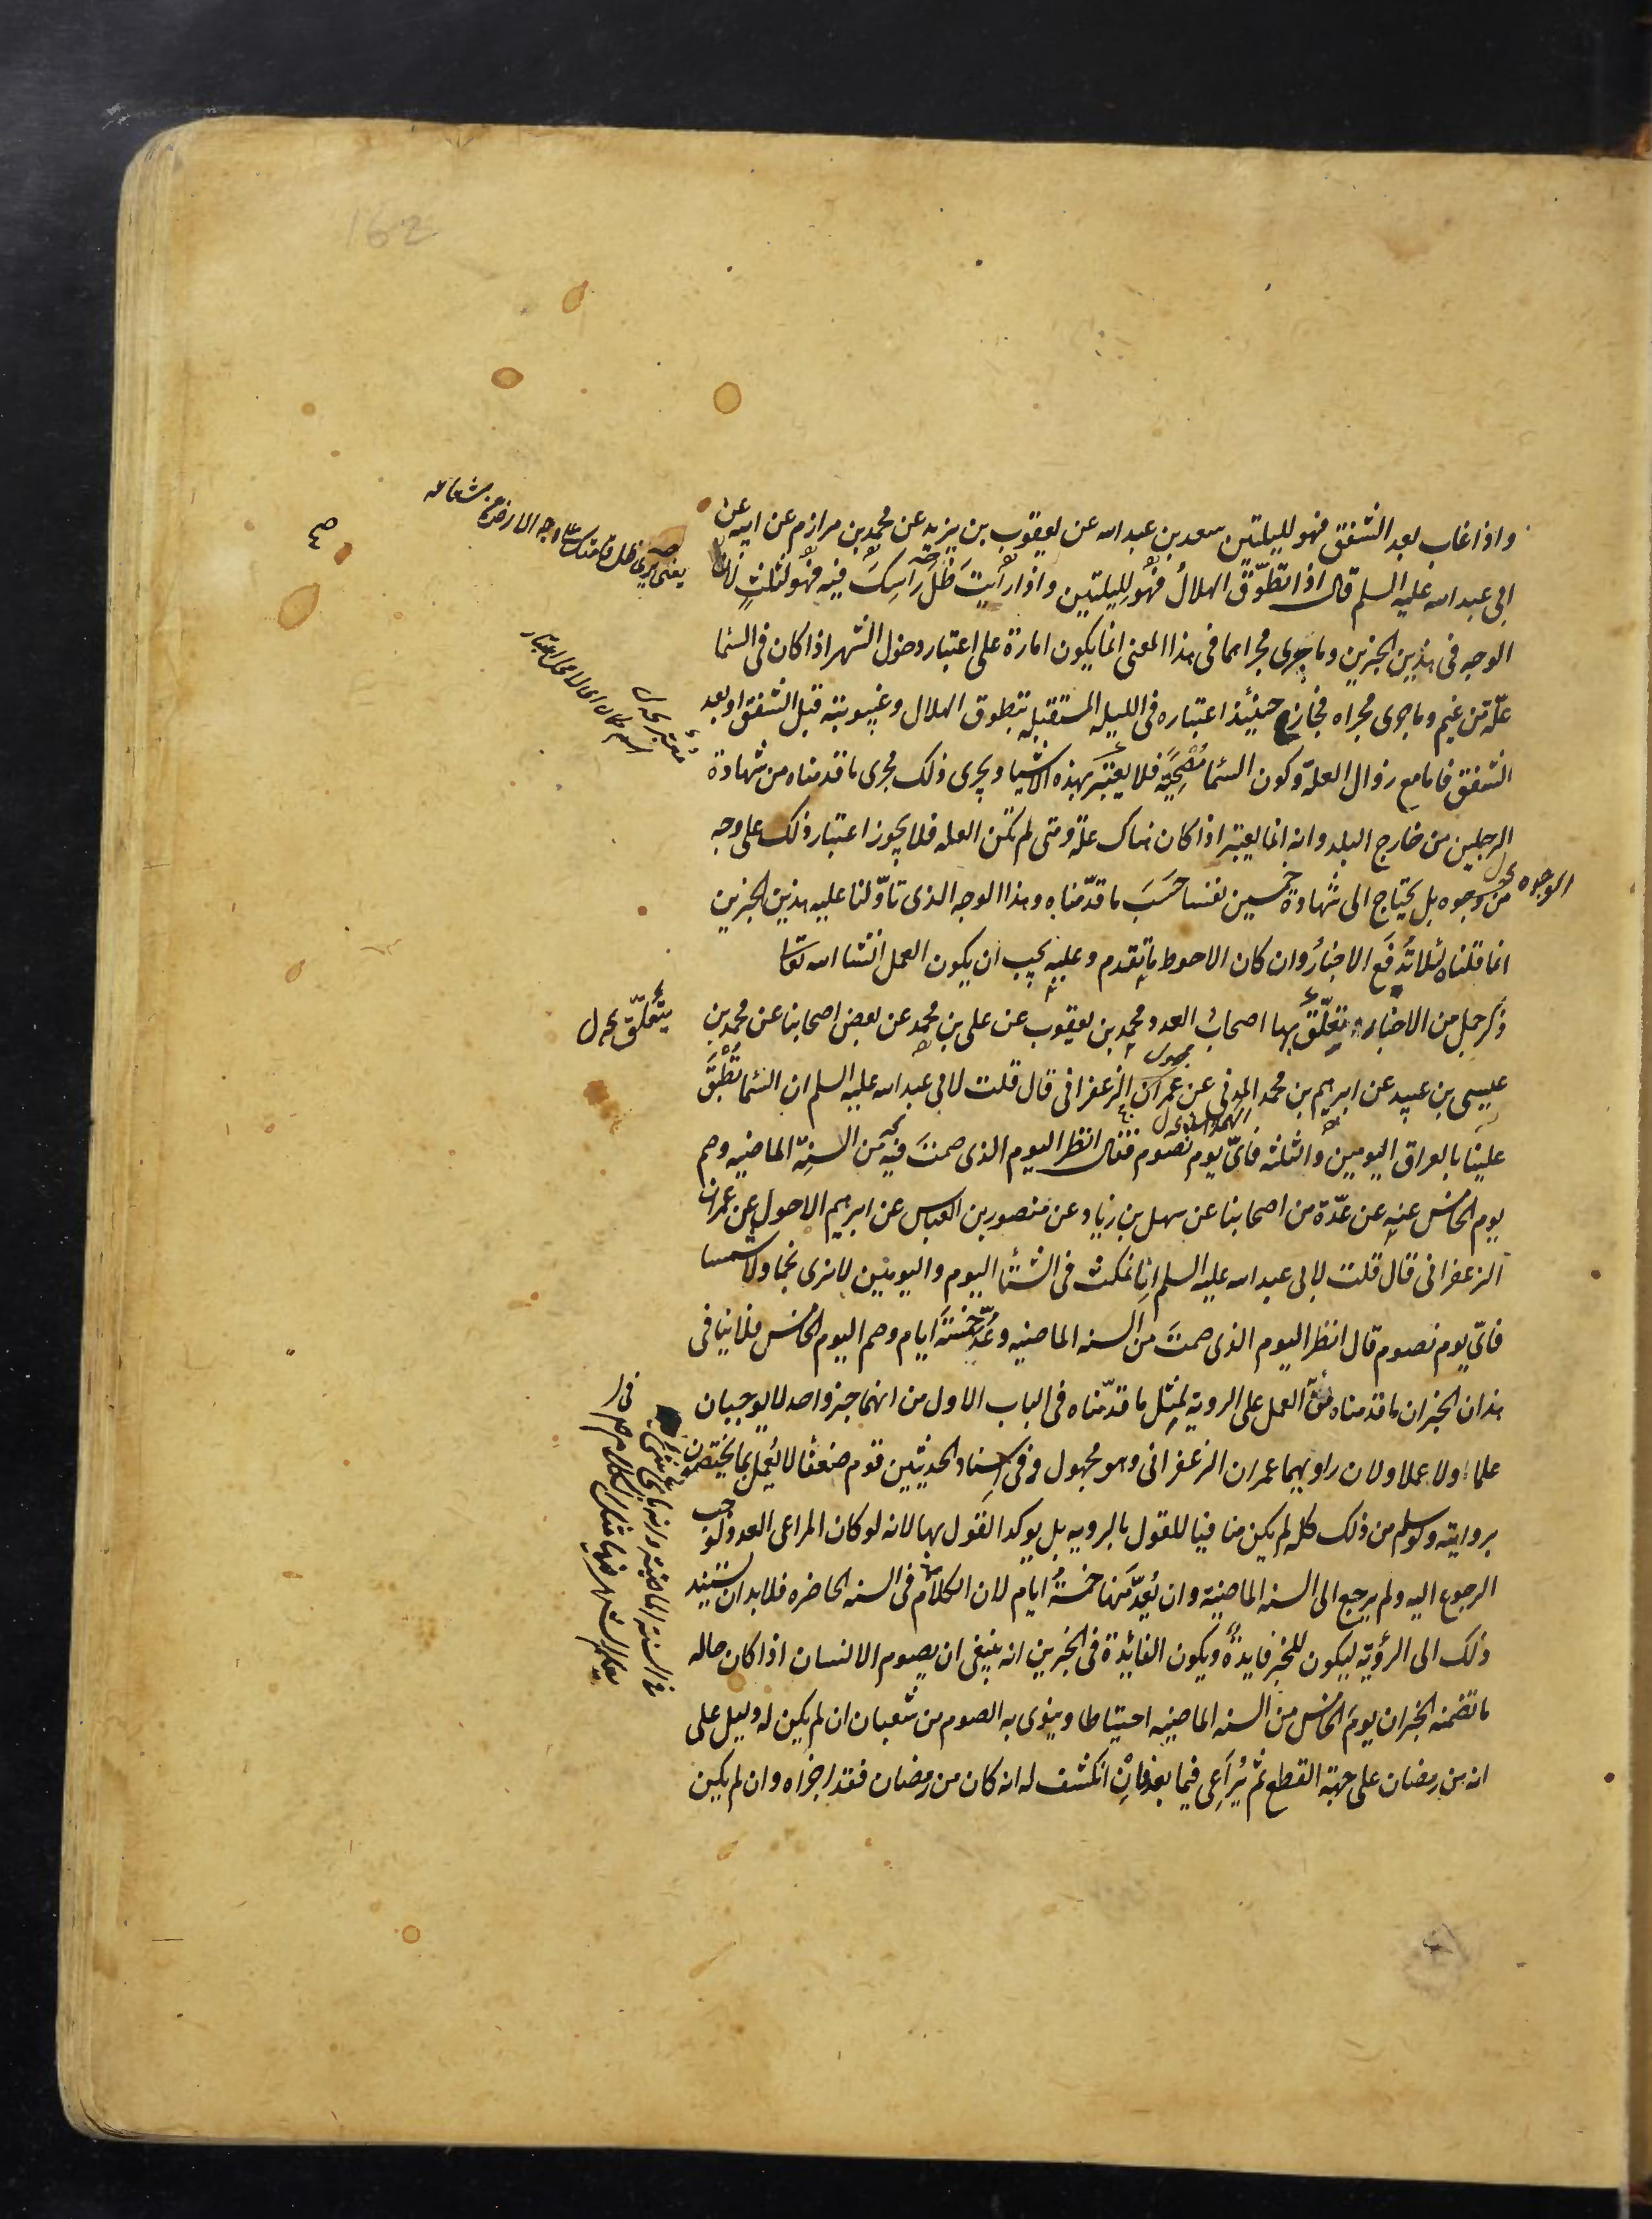 162
واذا غاب بعد الشفق فهو لليلتين سعد بن عبد الله عن يعقوب بن يزيد عن محمد بن مرازم عن ابيه عن
ابى عبد الله عليه السلم قال اذا تطوّق الهلالُ فهُو لِليلتين واذا رأيتَ ظلَّ رَاسِكَ فيه فهُو لثلثٍ لان
الوجه فى هذين الخبرين وما يجرى مجراهما فى هذا المعنى انما يكون امارة على اعتبار دخول الشهر اذا كان فى السما
علّة من غيم وما جرى مجراه فجاز حينئذ اعتباره فى الليله المستقبله بتطوق الهلال وغيبوبته قبل الشفق او بعد
الشفق فاما مع زوال العلة وكون السما مُصْحِيَةً فلا يعتبر بهذه الاشيا ويجرى ذلك مجرى ما قدمناه من شهادة
الرجلين من خارج البلد وانه انما يعتبر اذا كان هناك علة ومتى لم تكن العله فلا يجوز اعتبار ذلك على وجه
من وجوه بل يحتاج الى شهادة خمسين نفسا حَسَبَ ما قدّمناه وهذا الوجه الذى تاوّلنا عليه هذين الخبرين
الوجوه
انما قلناه لئلا تُدفَع الاخبارُ وان كان الاحوط ما تقدم وعليه يجب ان يكون العمل انشا الله تعالى
ذكر جمل من الاخبار تعلّقَ بها اصحابُ العدد محمد بن يعقوب عن على بن محمد عن بعض اصحابنا عن محمد بن
يتعلّق
عيسى بن عبيد عن ابرهيم بن محمد المدنى عن عمران الزعفرانى قال قلت لابى عبد الله عليه السلم ان السما تُطْبَقُ
مجهول
علينا بالعراق اليومين والثلثه فاىّ يوم نصوم فقال انظر اليوم الذى صمتَ فيه من السنة الماضيه وصم
يوم الخامس عنه عن عدّة من اصحابنا عن سهل بن زياد عن منصور بن العباس عن ابرهيم الاحول عن عمران
الزعفرانى قال قلت لابى عبد الله عليه السلم انا نمكث فى الشتا اليوم واليومين لا نرى نجما ولا شمسا
فاىّ يوم نصوم قال انظر اليوم الذى صمتَ من السنه الماضيه وعُدّ خمسَةَ ايام وصم اليوم الخامس فلا ينافى
هذان الخبران ما قدمناه من العمل على الروية لِمثل ما قدّمناه فى الباب الاول من انهما خبر واحد لا يوجبان
علما ولا عملا ولان راويهما عمران الزعفرانى وهو مجهول وفى اسناد الحديثين قوم ضعفا لا يُعْمل بما يختصون
بروايته ولو سلم من ذلك كله لم يكن منافيا للقول بالرويه بل يوكد القول بها لانه لو كان المراعى العدد لوجب
الرجوع اليه ولم يرجع الى السنه الماضية وان يُعدّ منها خمسةُ ايام لان الكلامَ فى السنه الحاضره فلابد ان يستند
ذلك الى الرؤية ليكون للخبر فايدةٌ ويكون الفائدة فى الخبرين انه ينبغى ان يصوم الانسان اذا كان حاله
ما تضمنه الخبران يومَ الخامس من السنه الماضيه احتياطا وينوى به الصوم من شعبان ان لم يكن له دليل على
انه من رمضان على جهة القطع ثم يُرَاعِى فيما بعد فاِنِ انكشف له انه كان من رمضان فقد اجزاه وان لم يكن